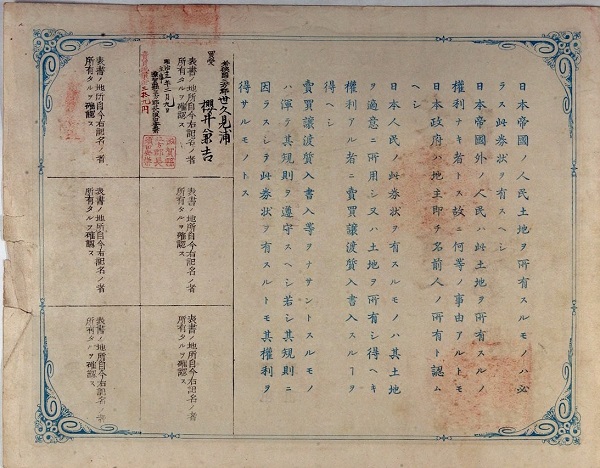 日本帝國ノ人民土地ヲ所有スルモノハ必
ラス此券狀ヲ有スヘシ
日本帝國外ノ人民ハ此土地ヲ所有スルノ
權利ナキ者トス故ニ何等ノ事由アルトモ
日本政府ハ地主即チ名前人ノ所有ト認ム
ヘシ
日本人民ノ此券狀ヲ有スルモノハ其土地
ヲ適意ニ所用シ又ハ土地ヲ所有シ得ヘキ
權利アル者ニ賣買讓渡質入書入スルヿヲ
得ヘシ
賣買讓渡質入書入等ヲナサントスルモノ
ハ渾テ其規則ヲ遵守スヘシ若シ其規則ニ
因ラスシテ此券狀ヲ有スルトモ其權利ヲ
得サルモノトス
世久見浦
買受
櫻井
吉
表書ノ地所自今右記名ノ者
所有タルヲ確認ス
明治十
表書ノ地所自今右記名ノ者
所有タルヲ確認ス
表書ノ地所自今右記名ノ者
所有タルヲ確認ス
表書ノ地所自今右記名ノ者
所有タルヲ確認ス
表書ノ地所自今右記名ノ者
所有タルヲ確認ス
表書ノ地所自今右記名ノ者
所有タルヲ確認ス